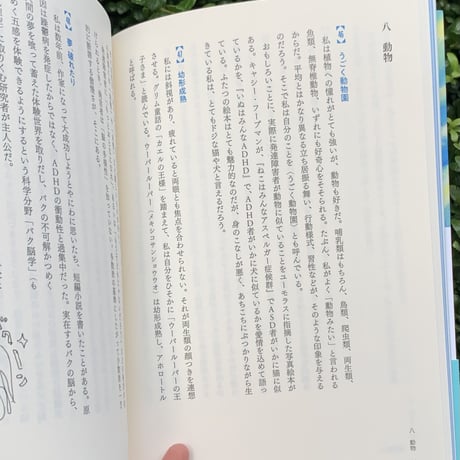 八 動物
【46】うごく動物園
私は植物への憧れがとても強いが、動物も好きだ。哺乳類はもちろん、鳥類、爬虫類、両生類、
魚類、無脊椎動物、いずれにも好奇心をそそられる。たぶん、私がよく「動物みたい」と言われる
からだ。平均とはかなり異なる立ち居振る舞い、行動様式、習性などが、そのような印象を与える
のだろう。そこで私は自分のことを〈うごく動物園〉とも呼んでいる。
おもしろいことに、実際に発達障害者が動物に似ていることをユーモラスに指摘した写真絵本が
ある。キャシー・フープマンが、『ねこはみんなアスペルガー症候群』でASD者がいかに猫に似
ているかを、『いぬはみんなADHD』で、ADHD者がいかに犬に似ているかを愛情を込めて語っ
ている。ふたつの絵本はとても魅力的なのだが、身のこなしが悪く、あちこちにぶつかりながら生
きている私は、とてもドジな猫や犬と言えるだろう。
【47】幼形成熟
私には斜視があり、疲れていると両眼とも焦点を合わせられない。それが両生類の顔つきを連想
させる。グリム童話の「カエルの王様」を踏まえて、私は自分をひそかに「ウーパールーパーの王
子さま」と読んでいる。ウーパールーパー（メキシコサンショウウオ）は幼形成熟し、アホロートル
と呼ばれる。
八 動物
【48】夢 破れたり
私は数年前、作家になって大成功しようとやにわに思いたち、短編小説を書いたことがある。原
因は躁鬱病を発症したからではなく、ADHDの衝動性と過集中だった。実在するバクの脳から、
間の夢を喰って蓄えた体験世界を取りだし、バクの不可解かつめく
めく五感を体験できるようにするという科学分野「バク脳学」（も
に取りくむ研究者が主人公だ。